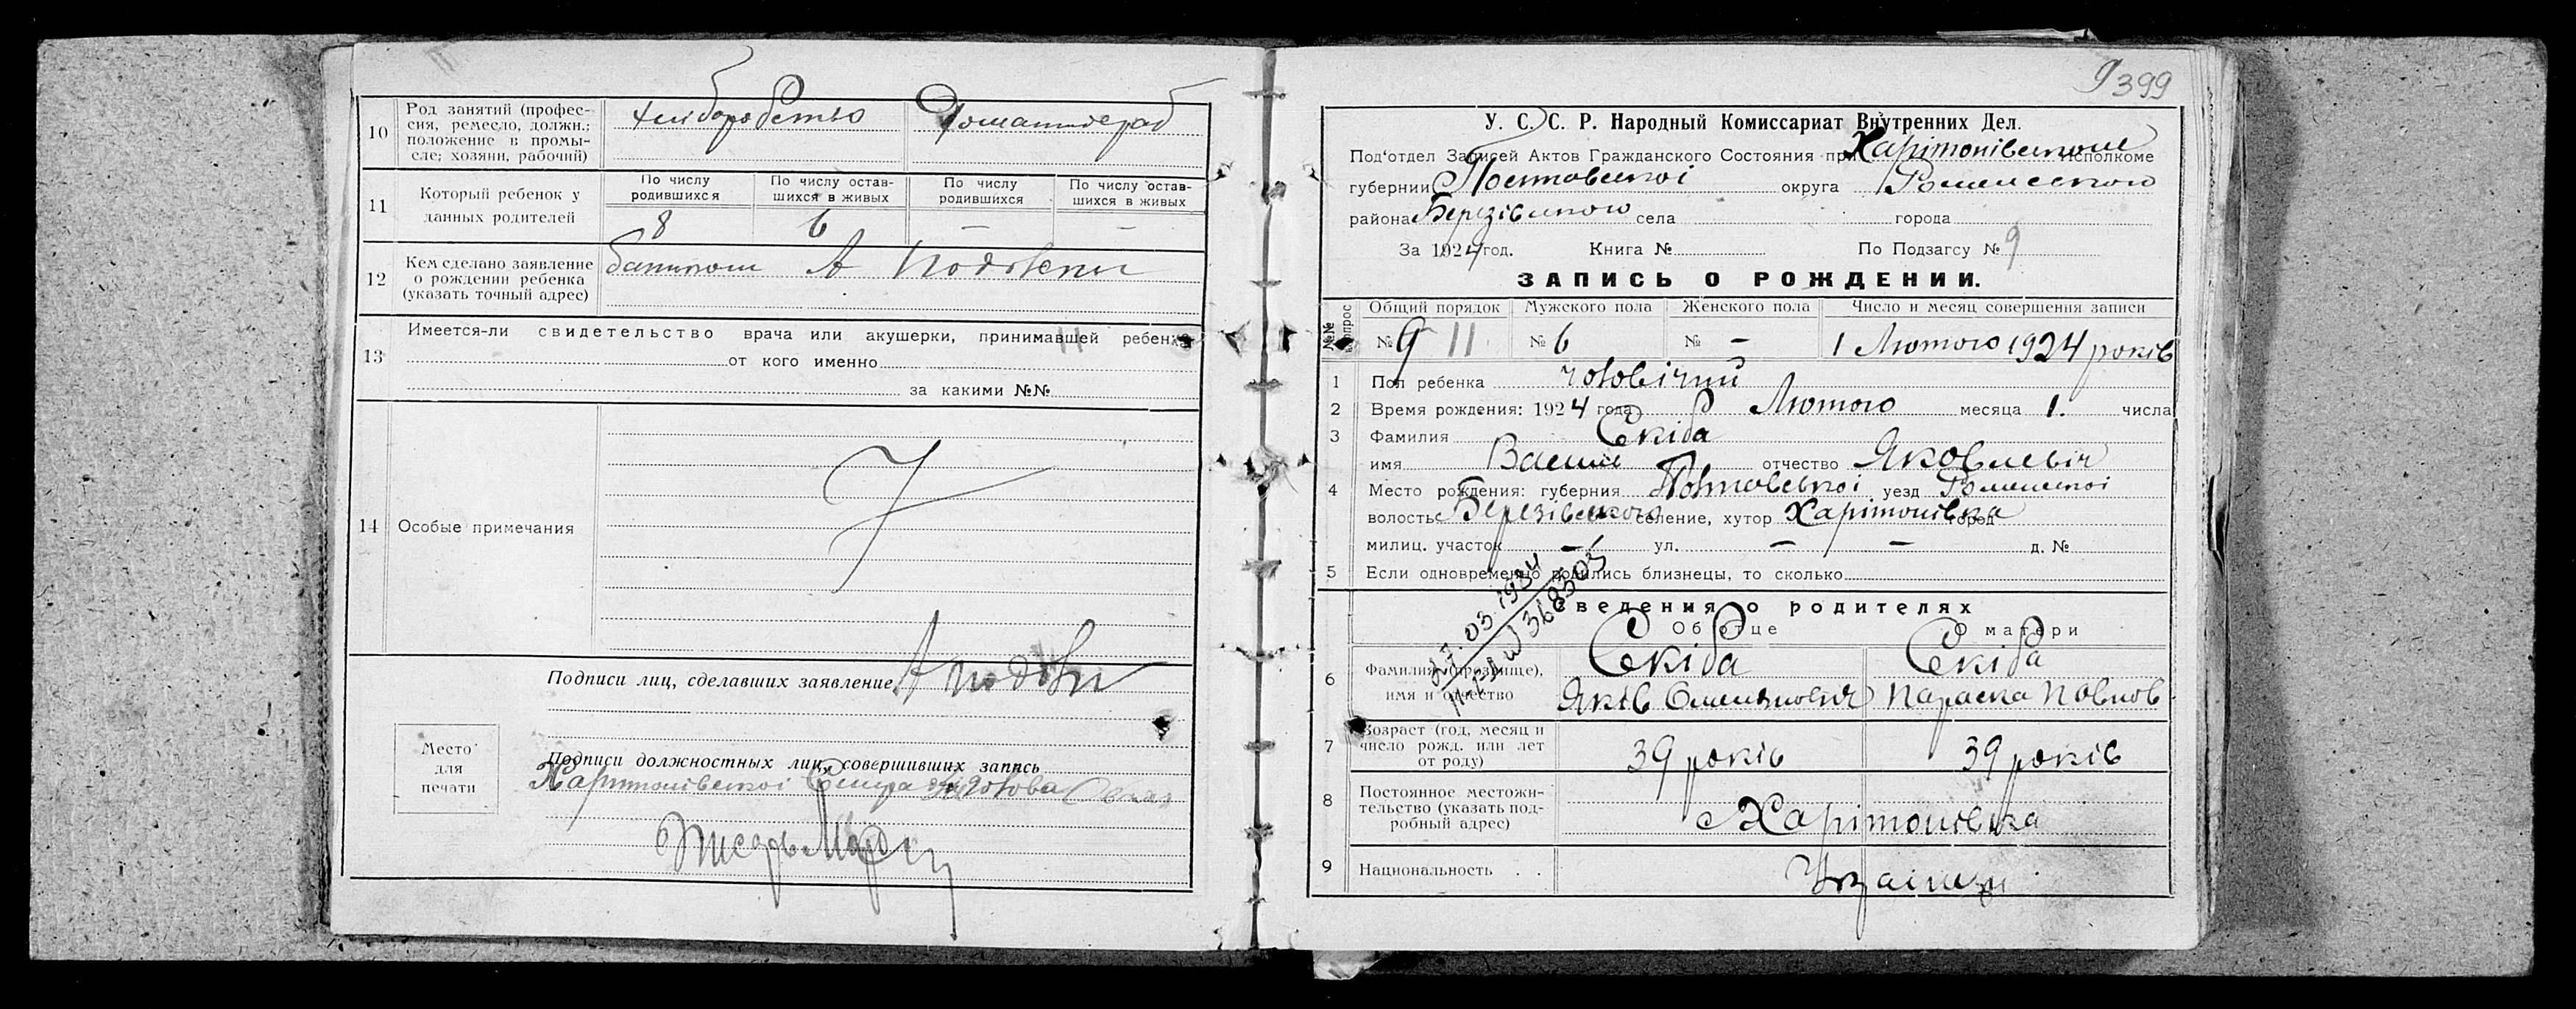 10 Род занятий (профес-
сия, ремесло, должн.;
положение в промы-
сле; хозяин, рабочий)
хліборобство
11 Который ребенок у
данных родителей
По числу
родившихся
По числу остав-
шихся в живых
По числу
родившихся
По числу остав-
шихся в живых
8 6 — —
12 Кем сделано заявление
о рождении ребенка
(указать точный адрес)
батьком А
13 Имеется-ли свидетельство врача или акушерки, принимавшей ребенка
11
от кого именно
за какими №№
14 Особые примечания
Подписи лиц, сделавших заявление
А
Место
для
печати
Подписи должностных лиц, совершивших запись
Харітонівської
9 399
У. С. С. Р. Народный Комиссариат Внутренних Дел.
Под'отдел Записей Актов Гражданского Состояния при Харітонівськом исполкоме
губернии Полтавської округа Роменського
района Березівського села города
За 1924 год. Книга № По Подзагсу № 9
ЗАПИСЬ О РОЖДЕНИИ.
№№ вопрос Общий порядок Мужского пола Женского пола Число и месяц совершения записи
№ 9 11 № 6 № — 1 Лютого 1924 років
1 Пол ребенка чоловічий
2 Время рождения: 1924 года Лютого месяца 1. числа
3 Фамилия Скіба
имя Василь отчество Яковлевіч
4 Место рождения: губерния Полтавської уезд Роменської
волость Березівського селение, хутор Харітонівка город
милиц. участок — ул. — — д. №
5 Если одновременно родились близнецы, то сколько
Сведения о родителях
Об отце О матери
6 Фамилия (прозвище),
имя и отчество
Скіба Скіба
Яків Омелянович Параска Павлов
7 Возраст (год, месяц и
число рожд. или лет
от роду)
39 років 39 років
8 Постоянное местожи-
тельство (указать под-
робный адрес)
Харітонівка
9 Национальность . .
Українці